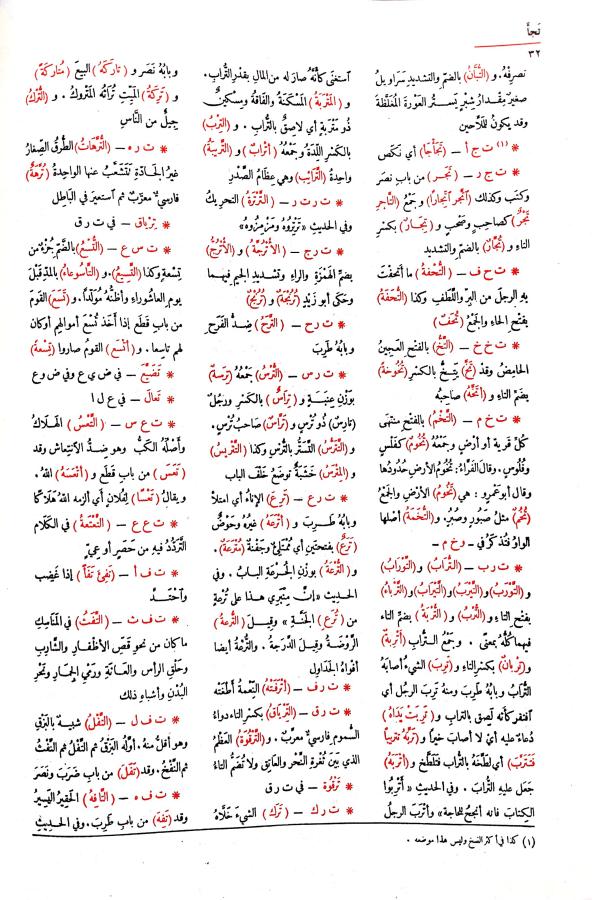 نجأ
٣٢
تصرفه. و (التُّبَّان) بالضم والتشديد سراويل
صغير مقدار شبر يستر العورة المغلظة
وقد يكون للملاحين
* (١) ت ج أ – (تَجَأْجَأَ) أي نكص
* ت ج ر – (تَجَرَ) من باب نصر
وكتب وكذلك (اتَّجر اتِّجارا) و جمعُ (التاجر)
(تَجْرٌ) كصاحب وصَحْب و (تِجَار) بكسر
التاء و (تُجَّار) بالضم والتشديد
* ت ح ف – (التُّحْفة) ما أتحفتَ
به الرجل من البر واللَّطَف وكذا (التُّحَفة)
بفتح الحاء والجمع (تُحَف)
* ت خ خ – (التَّخّ) بالفتح العجين
الحامض وقد (تَخَّ) يَتِخّ بالكسر (تُخُوخة)
بضم التاء و (أتَخَّه) صاحبه
* ت خ م – (التَّخْم) بالفتح منتهى
كل قرية أو أرض وجمعه (تُخُوم) كفَلْس
وفُلُوس. وقال الفراء: تُخُوم الأرض حدودها
وقال أبو عمرو: هي (تَخُوم) الأرض والجمع
(تُخُم) مثل صَبُور وصُبُر. و (التُّخَمة) أصلها
الواو فتذكر في – وخ م –
* ت ر ب – (التُّراب) و (التَّوْراب)
و (التَّوْرَب) و (التَّيْرَب) و (التَّيْراب) و (التَّرْباء)
بفتح التاء و (التُّرْب) و (التُّرْبة) بضم التاء
فيهما كله بمعنى. و جمع التراب (أتْرِبة)
و (تِرْبان) بكسر التاء و (تَرِب) الشيء أصابه
التراب وبابه طرب ومنه تَرِب الرجل أي
افتقر كأنه لصق بالتراب و (تَرِبَتْ يداه)
دعاء عليه أي لا أصاب خيراً و (تَرَّبه تتريبا)
(فتَتَرَّب) أي لطَّخه بالتراب فتلطخ و (أتْرَبه)
جعل عليه التراب. وفي الحديث « أَتْرِبوا
الكتاب فإنه أنجحُ للحاجة» وأتْرَب الرجل
استغنى كأنه صار له من المال بقدر التراب.
و (المَتْرَبة) المسكنة والفاقة ومسكينٌ
ذو مَتْرَبة أي لاصق بالتراب. و (التِّرْب)
بالكسر اللِّدَة وجمعه (أتْراب) و (التَّريبة)
واحدة (الترائب) وهي عظام الصدر
* ت ر ت ر – (التَّرْتَرة) التحريك
وفي الحديث «تَرْتِروه ومَزْمِزوه»
* ت ر ج – (الأُتْرُجَّة) و (الأُتْرُجّ)
بضم الهمزة والراء وتشديد الجيم فيهما
وحكى أبو زيد (تُرُنْجة) و (تُرُنْج)
* ت ر ح – (التَّرَح) ضد الفَرَح
وبابه طرب
* ت ر س – (التُّرْس) جمعه (تِرَسة)
بوزن عِنَبة و (تِراس) بالكسر ورجل
(تارِس) ذو تُرْس و (تَرّاس) صاحب تُرْس.
و (التَّتَرُّس) التستر بالترس وكذا (التتريس)
و (المِتْرَس) خشبة توضع خلف الباب
* ت ر ع – (تَرِعَ) الإناء أي امتلأ
وبابه طرب و (أتْرَعه) غيره وحوض
(تَرَع) بفتحتين أي ممتلئ وجَفْنة (مُتْرَعة).
و (التُّرْعة) بوزن الجُرعة الباب. وفي
الحديث «إن منبري هذا على تُرْعة
من (تُرَع) الجنة» وقيل (الترعة)
الروضة وقيل الدرجة. والترعة أيضا
أفواه الجداول
* ت ر ف – (أترفته) النعمة أطغته
* ت ر ق – (التِّرْياق) بكسر التاء دواء
السموم فارسي معرّب. و (التَّرْقُوة) العظم
الذي بين ثُغرة النحر والعاتق ولا تُضم التاء
* تَرْقُوة – في ت ر ق
* ت ر ك – (تَرَك) الشيء خَلّاه
وبابه نصر و (تاركه) البيع (مُتاركة)
و (تَرِكة) الميت تُراثه المتروك. و (التُّرْك)
جيل من الناس
* ت ر ه – (التُّرَّهات) الطرق الصغار
غير الجادة تتشعب عنها الواحدة (تُرَّهة)
فارسي معرّب ثم استعير في الباطل
* ترياق – في ت ر ق
* ت س ع – (التُّسْع) بالضم جزء من
تسعة وكذا (التَّسيع). و (التاسوعاء) بالمد قبل
يوم العاشوراء وأظنه مُوَلَّدا. و (تَسَع) القوم
من باب قطع إذا أخذ تُسع أموالهم أو كان
لهم تاسعا. و (أتسع) القوم صاروا (تسعة)
* تَضَيَّع – في ض ي ع وفي ض و ع
* تَعالَ – في ع ل ا
* ت ع س – (التَّعْس) الهلاك
وأصله الكبّ وهو ضد الانتعاش وقد
(تَعَسَ) من باب قطع و (أتْعَسَه) الله.
ويقال (تَعْسا) لفلان أي ألزمه الله هلاكا
* ت ع ع – (التَّعْتَعة) في الكلام
التردد فيه من حَصَر أو عِيّ
* ت ف أ – (تَفِئَ تَفَأً) إذا غضب
واحتد
* ت ف ث – (التَّفَث) في المناسك
ما كان من نحو قص الأظفار والشارب
وحلق الرأس والعانة ورمي الجمار ونحر
البُدْن وأشباه ذلك
* ت ف ل – (التَّفْل) شبيه بالبَزْق
وهو أقل منه. أوله البَزْق ثم التَّفْل ثم النَّفْث
ثم النَّفْخ. وقد (تَفَل) من باب ضرب ونصر
* ت ف ه – (التافه) الحقير اليسير
وقد (تَفِه) من باب طرب. وفي الحديث
(١) كذا في أكثر النسخ وليس هذا موضعه .